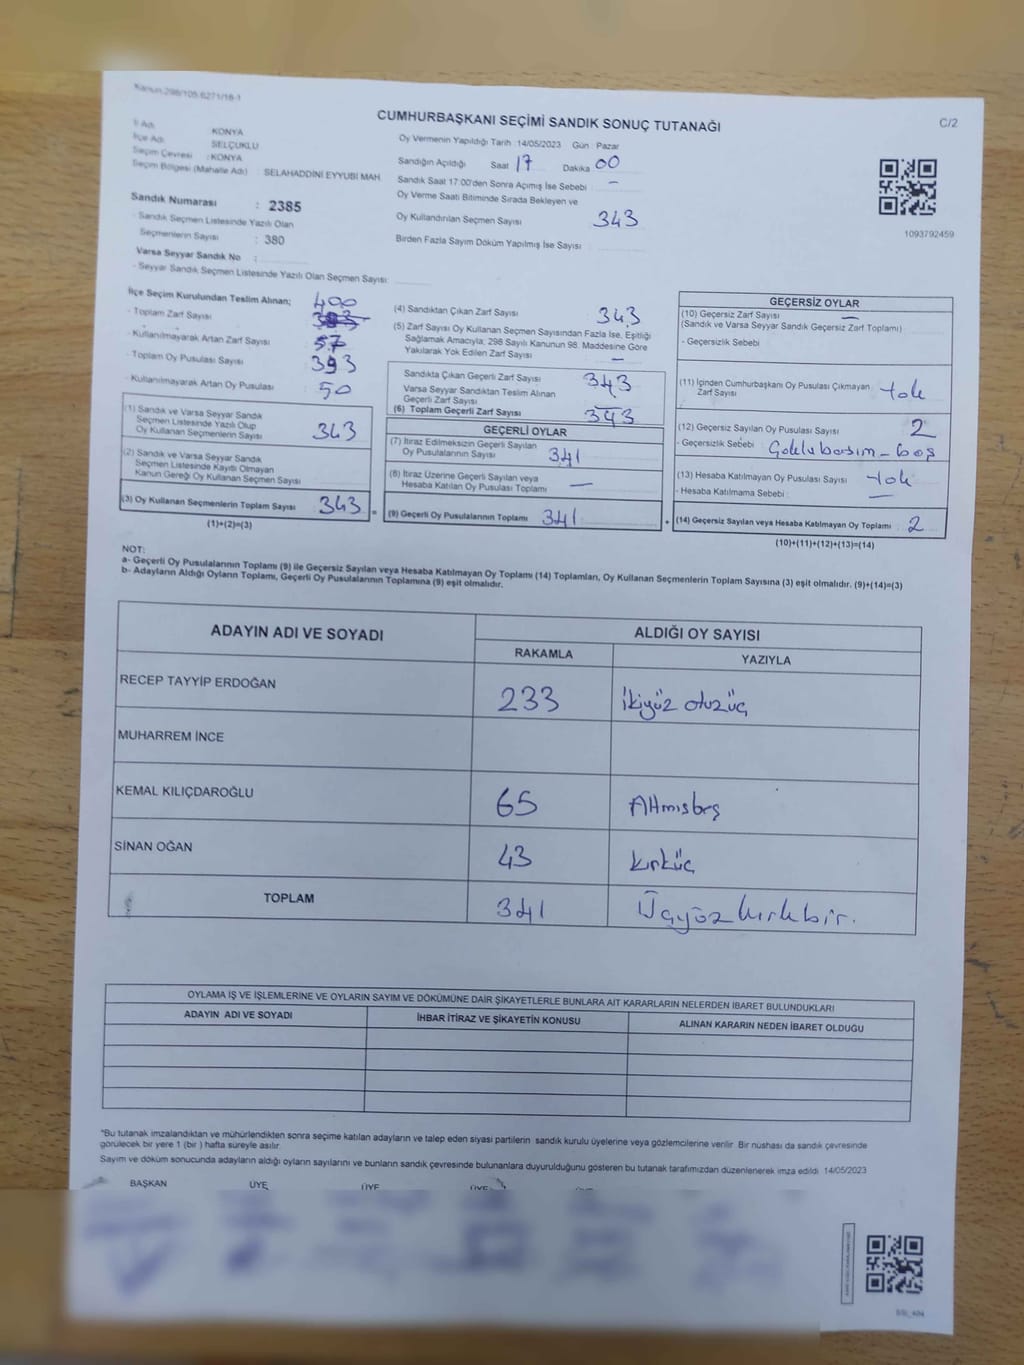 Kanun:298/105,6271/18-1
CUMHURBAŞKANI SEÇİMİ SANDIK SONUÇ TUTANAĞI
C/2
İl Adı : KONYA
İlçe Adı : SELÇUKLU
Seçim Çevresi : KONYA
Seçim Bölgesi (Mahalle Adı) : SELAHADDİNİ EYYUBİ MAH.
Sandık Numarası : 2385
- Sandık Seçmen Listesinde Yazılı Olan
Seçmenlerin Sayısı : 380
Varsa Seyyar Sandık No :
- Seyyar Sandık Seçmen Listesinde Yazılı Olan Seçmen Sayısı:
Oy Vermenin Yapıldığı Tarih :14/05/2023 Gün : Pazar
Sandığın Açıldığı Saat 17 Dakika 00
Sandık Saat 17:00'den Sonra Açımış İse Sebebi : -
Oy Verme Saati Bitiminde Sırada Bekleyen ve
Oy Kullandırılan Seçmen Sayısı 343
Birden Fazla Sayım Döküm Yapılmış İse Sayısı :
1093792459
İlçe Seçim Kurulundan Teslim Alınan; 400
- Toplam Zarf Sayısı 393
- Kullanılmayarak Artan Zarf Sayısı 57
- Toplam Oy Pusulası Sayısı 393
- Kullanılmayarak Artan Oy Pusulası 50
(1) Sandık ve Varsa Seyyar Sandık
Seçmen Listesinde Yazılı Olup
Oy Kullanan Seçmenlerin Sayısı 343
(2) Sandık ve Varsa Seyyar Sandık
Seçmen Listesinde Kayıtlı Olmayan
Kanun Gereği Oy Kullanan Seçmen Sayısı
(3) Oy Kullanan Seçmenlerin Toplam Sayısı 343 =
(1)+(2)=(3)
(4) Sandıktan Çıkan Zarf Sayısı 343
(5) Zarf Sayısı Oy Kullanan Seçmen Sayısından Fazla İse, Eşitliği
Sağlamak Amacıyla, 298 Sayılı Kanunun 98. Maddesine Göre
Yakılarak Yok Edilen Zarf Sayısı -
Sandıkta Çıkan Geçerli Zarf Sayısı 343
Varsa Seyyar Sandıktan Teslim Alınan
Geçerli Zarf Sayısı -
(6) Toplam Geçerli Zarf Sayısı 343
GEÇERLİ OYLAR
(7) İtiraz Edilmeksizin Geçerli Sayılan
Oy Pusulalarının Sayısı 341
(8) İtiraz Üzerine Geçerli Sayılan veya
Hesaba Katılan Oy Pusulası Toplamı -
(9) Geçerli Oy Pusulalarının Toplamı 341 +
GEÇERSİZ OYLAR
(10) Geçersiz Zarf Sayısı -
(Sandık ve Varsa Seyyar Sandık Geçersiz Zarf Toplamı)
- Geçersizlik Sebebi
(11) İçinden Cumhurbaşkanı Oy Pusulası Çıkmayan
Zarf Sayısı Yok
(12) Geçersiz Sayılan Oy Pusulası Sayısı 2
- Geçersizlik Sebebi : boş
(13) Hesaba Katılmayan Oy Pusulası Sayısı Yok
- Hesaba Katılmama Sebebi : -
(14) Geçersiz Sayılan veya Hesaba Katılmayan Oy Toplamı : 2
(10)+(11)+(12)+(13)=(14)
NOT:
a- Geçerli Oy Pusulalarının Toplamı (9) ile Geçersiz Sayılan veya Hesaba Katılmayan Oy Toplamı (14) Toplamları, Oy Kullanan Seçmenlerin Toplam Sayısına (3) eşit olmalıdır. (9)+(14)=(3)
b- Adayların Aldığı Oyların Toplamı, Geçerli Oy Pusulalarının Toplamına (9) eşit olmalıdır.
ADAYIN ADI VE SOYADI
ALDIĞI OY SAYISI
RAKAMLA YAZIYLA
RECEP TAYYİP ERDOĞAN 233 İkiyüz otuzüç
MUHARREM İNCE
KEMAL KILIÇDAROĞLU 65 Altmışbeş
SİNAN OĞAN 43 kırküç
TOPLAM 341 Üçyüz kırkbir.
OYLAMA İŞ VE İŞLEMLERİNE VE OYLARIN SAYIM VE DÖKÜMÜNE DAİR ŞİKAYETLERLE BUNLARA AİT KARARLARIN NELERDEN İBARET BULUNDUKLARI
ADAYIN ADI VE SOYADI İHBAR İTİRAZ VE ŞİKAYETİN KONUSU ALINAN KARARIN NEDEN İBARET OLDUĞU
*Bu tutanak imzalandıktan ve mühürlendikten sonra seçime katılan adayların ve talep eden siyasi partilerin sandık kurulu üyelerine veya gözlemcilerine verilir. Bir nüshası da sandık çevresinde
görülecek bir yere 1 (bir ) hafta süreyle asılır.
Sayım ve döküm sonucunda adayların aldığı oyların sayılarını ve bunların sandık çevresinde bulunanlara duyurulduğunu gösteren bu tutanak tarafımızdan düzenlenerek imza edildi. 14/05/2023
BAŞKAN ÜYE ÜYE ÜYE